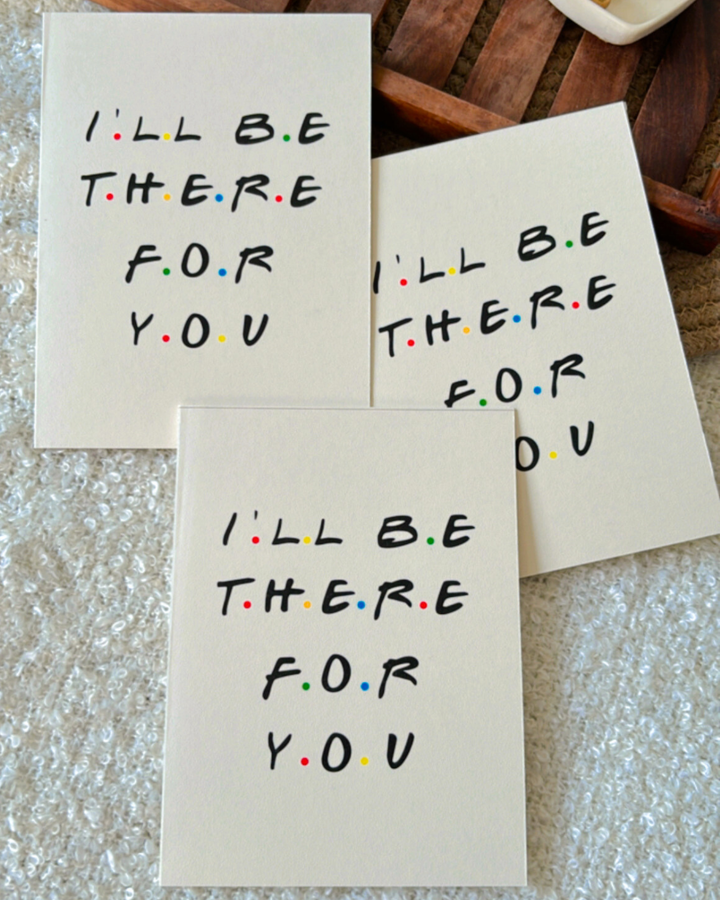 I'.L.L B.E
T.H.E.R.E
F.O.R
Y.O.U
I'.L.L B.E
T.H.E.R.E
F.O.R
O.U
I'.L.L B.E
T.H.E.R.E
F.O.R
Y.O.U